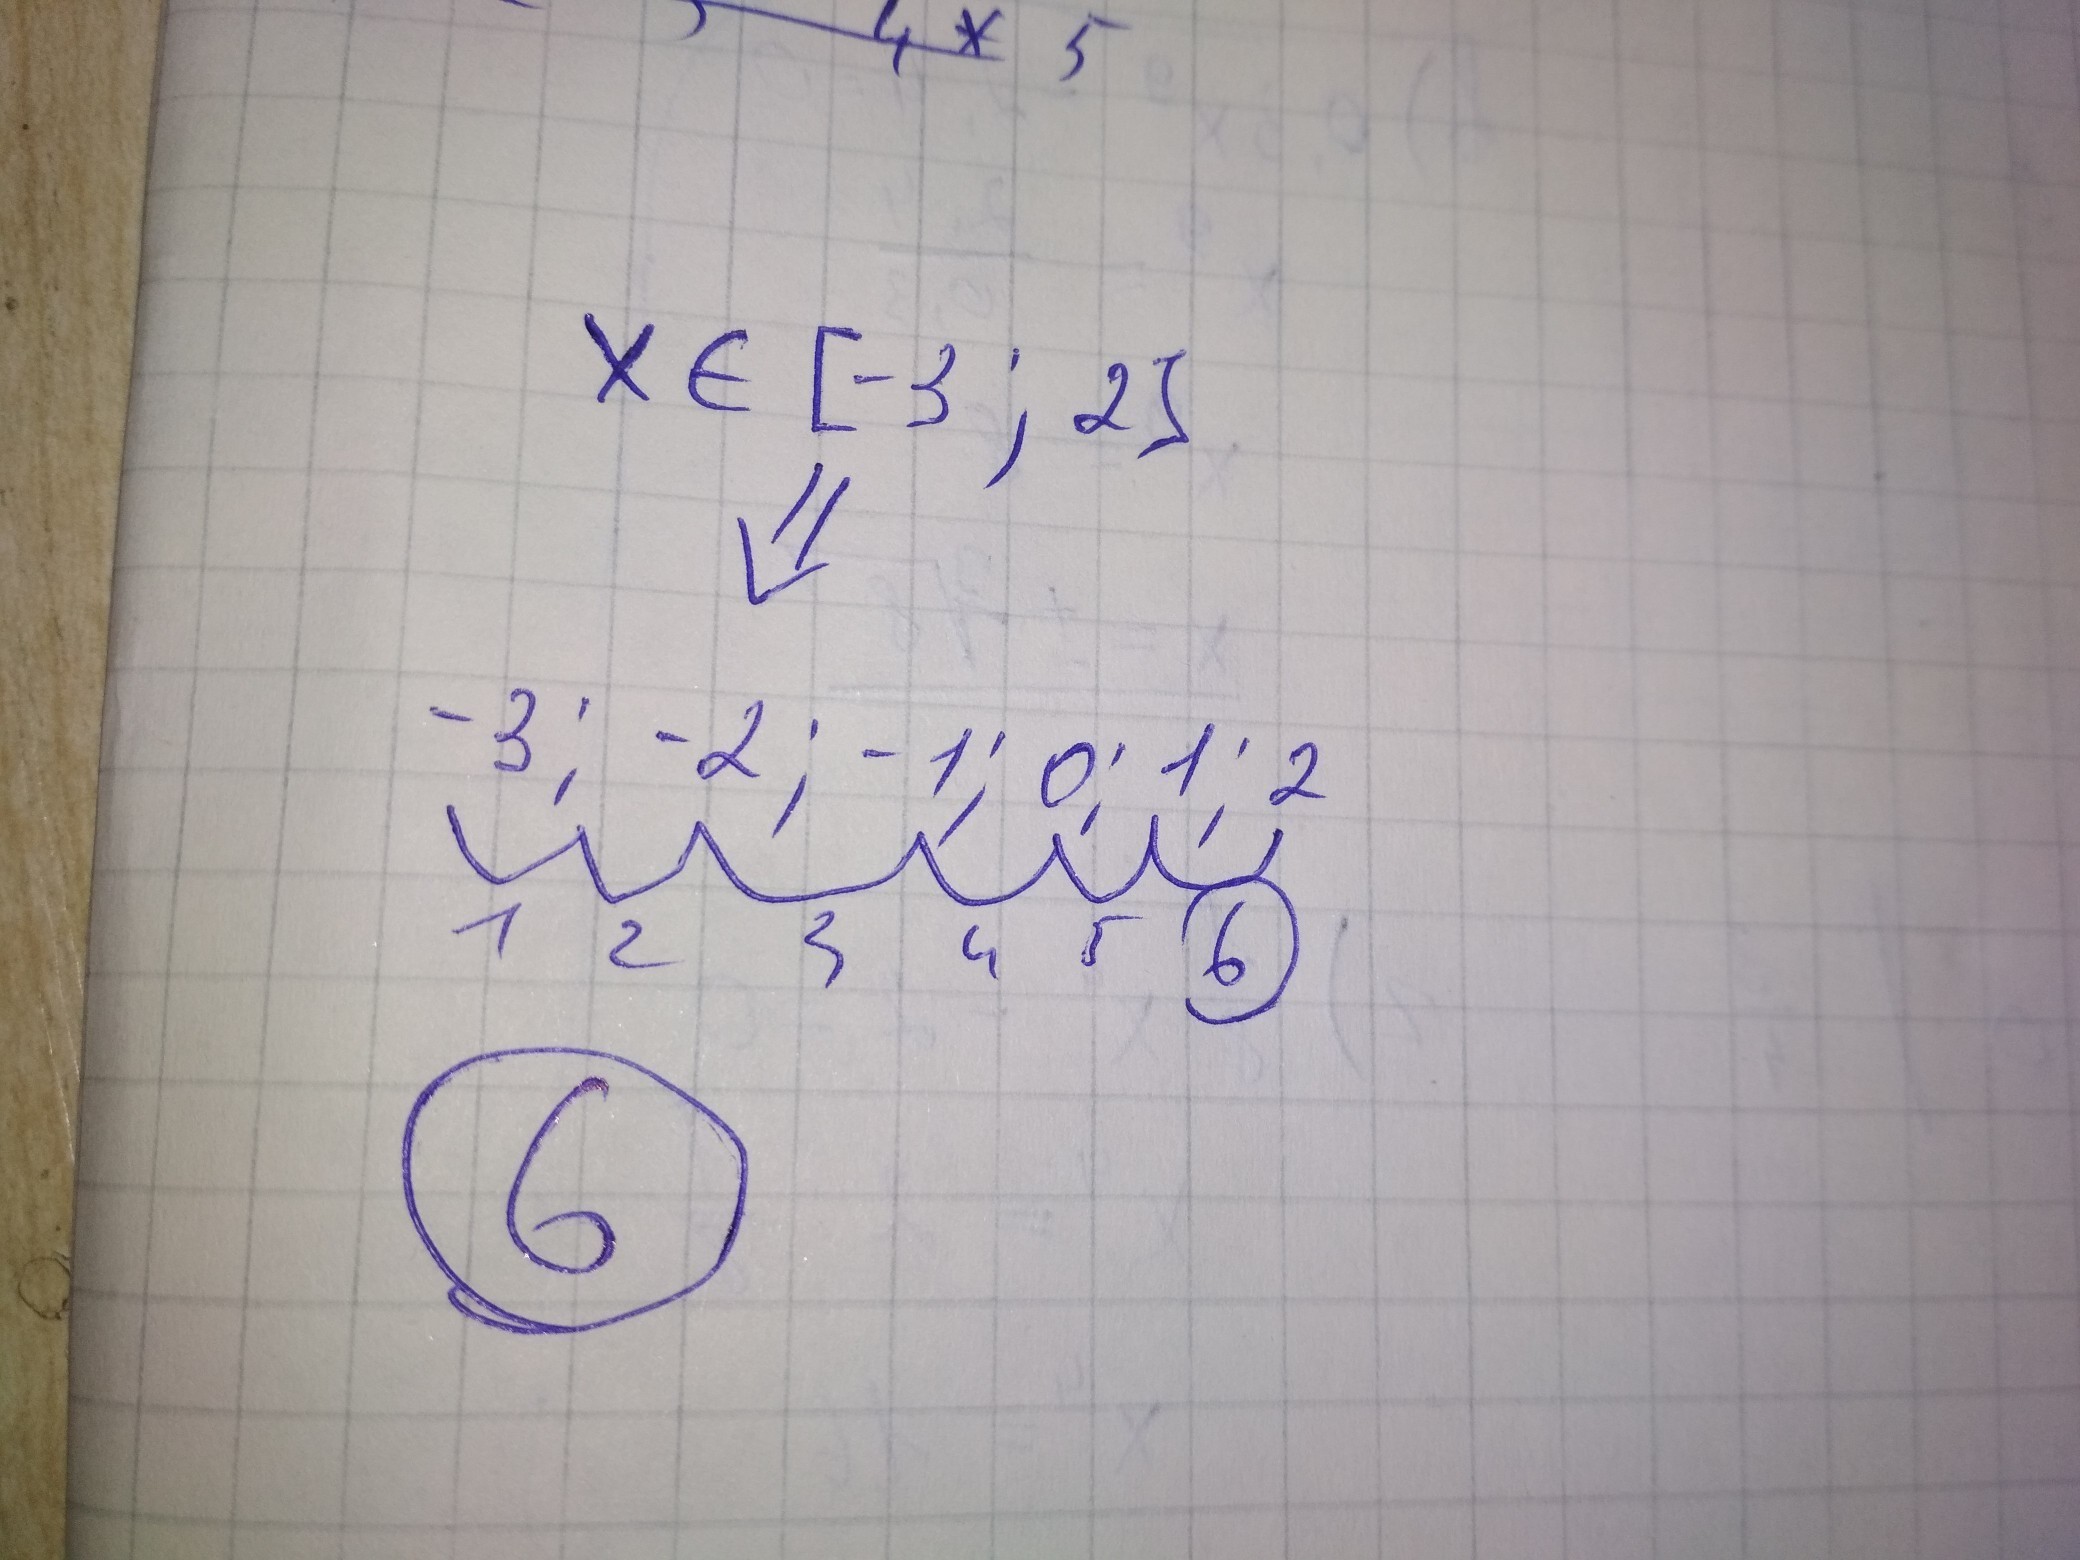 4 * 5
X ∈ [-3; 2]
-3; -2; -1; 0; 1; 2
1 2 3 4 5 6
6